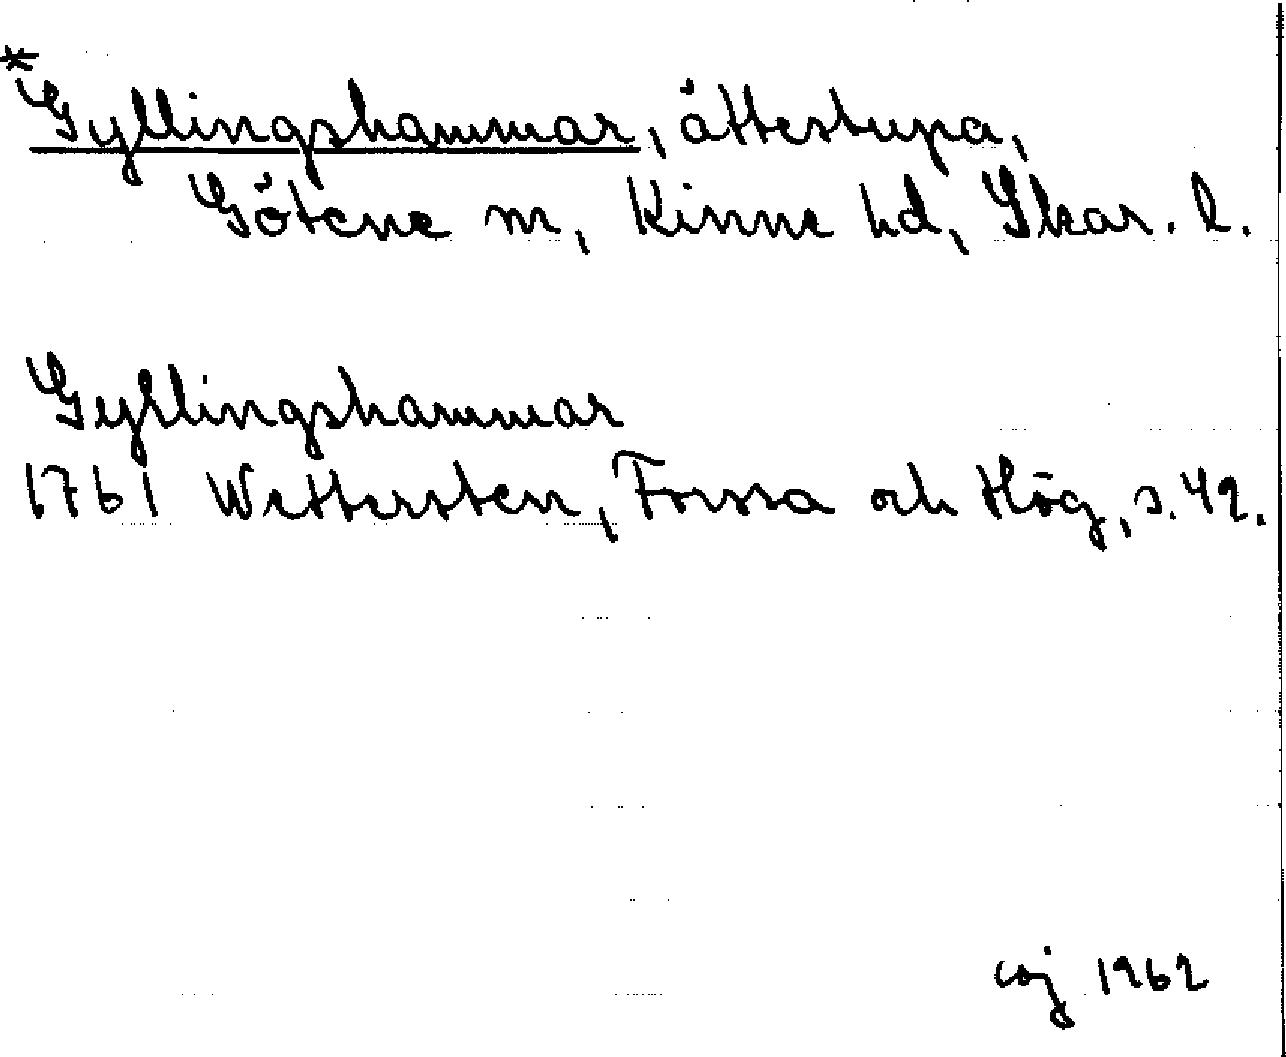 *Gyllingshammar, ättestupa,
Götene sn, Kinne hd, Skar. l.
Gyllingshammar
1761 Wettersten, Forssa och Hög, s. 42.
caj 1962